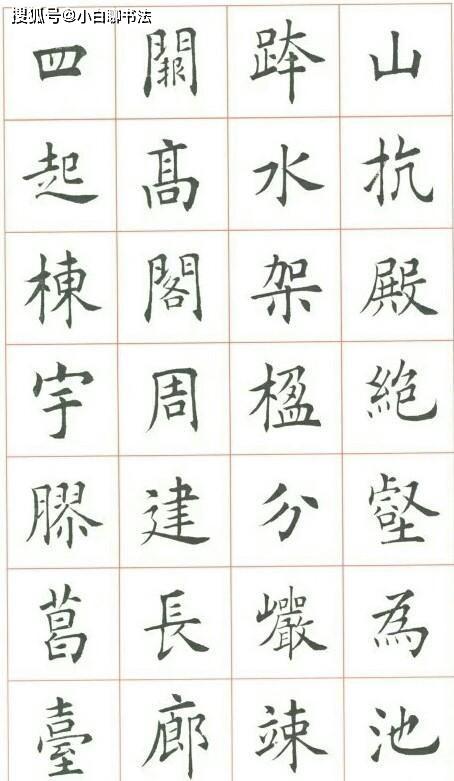 搜狐号@小白聊书法
山抗殿絶壑為池
跨水架楹分巖竦
闕髙閣周建長廊
四起棟宇膠葛臺